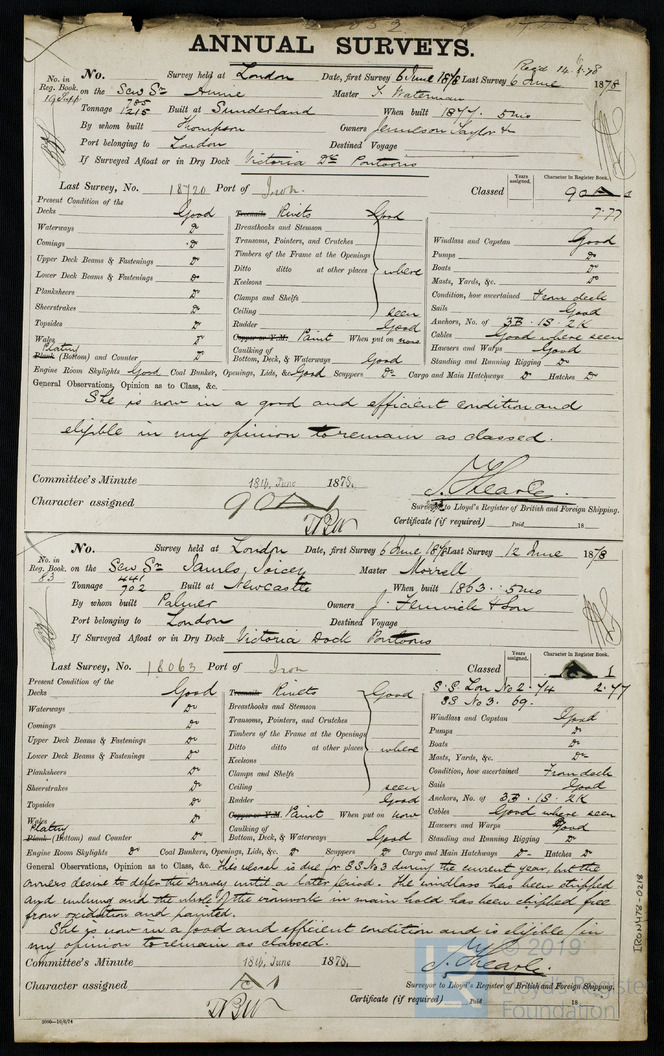 ANNUAL SURVEYS.
Recd 14.6.78
No. in Reg. Book. No. Survey held at London Date, first Survey 6 June 1878 Last Survey 6 June 1878
19 Supp on the Scw Sr Annie Master T. Waterman
Tonnage 785 1215 Built at Sunderland When built 1877. 5mo
By whom built Thompson Owners Jamieson Taylor &
Port belonging to London Destined Voyage
If Surveyed Afloat or in Dry Dock Victoria Dk Pontoons
Last Survey, No. 18720 Port of Iron. Classed Years assigned. Character in Register Book. 90 A 1
7.77
Present Condition of the
Decks Good Treenails Rivets Good
Waterways Do Breasthooks and Stemson Windlass and Capstan Good
Comings Do Transoms, Pointers, and Crutches Pumps Do
Upper Deck Beams & Fastenings Do Timbers of the Frame at the Openings Boats Do
Lower Deck Beams & Fastenings Do Ditto ditto at other places where Masts, Yards, &c. Do
Planksheers Do Keelsons Condition, how ascertained From deck
Sheerstrakes Do Clamps and Shelfs Sails Good
Topsides Do Ceiling seen Anchors, No. of 3B. 1S. 2K
Wales Do Rudder Good Cables Good where seen
Plating Copper or Y.M. Paint When put on now Hawsers and Warps Good
Plank (Bottom) and Counter Do Caulking of Bottom, Deck, & Waterways Good Standing and Running Rigging Do
Engine Room Skylights Good Coal Bunker, Openings, Lids, &c. Good Scuppers Do Cargo and Main Hatchways Do Hatches Do
General Observations, Opinion as to Class, &c.
She is now in a good and efficient condition and
eligible in my opinion to remain as classed.
Committee's Minute 18th June 1878.
Character assigned 90 A 1
Surveyor to Lloyd's Register of British and Foreign Shipping.
Certificate (if required) Paid 18
No. in Reg. Book. No. Survey held at London Date, first Survey 6 June 1878 Last Survey 12 June 1878
83 on the Scw Sr James Joicey Master Morrell
Tonnage 441 702 Built at Newcastle When built 1863. 5mo
By whom built Palmer Owners J. Fenwick & Son
Port belonging to London Destined Voyage
If Surveyed Afloat or in Dry Dock Victoria Dock Pontoons
Last Survey, No. 18063 Port of Iron Classed Years assigned. Character in Register Book. A 1
S.S Lon No 2. 74 2.77
SS No 3. 69.
Present Condition of the
Decks Good Treenails Rivets Good
Waterways Do Breasthooks and Stemson Windlass and Capstan Good
Comings Do Transoms, Pointers, and Crutches Pumps Do
Upper Deck Beams & Fastenings Do Timbers of the Frame at the Openings Boats Do
Lower Deck Beams & Fastenings Do Ditto ditto at other places where Masts, Yards, &c. Do
Planksheers Do Keelsons Condition, how ascertained From deck
Sheerstrakes Do Clamps and Shelfs Sails Good
Topsides Do Ceiling seen Anchors, No. of 3B. 1S. 2K
Wales Do Rudder Good Cables Good where seen
Plating Copper or Y.M. Paint When put on now Hawsers and Warps Good
Plank (Bottom) and Counter Do Caulking of Bottom, Deck, & Waterways Good Standing and Running Rigging Do
Engine Room Skylights Do Coal Bunkers, Openings, Lids, &c. Do Scuppers Do Cargo and Main Hatchways Do Hatches Do
General Observations, Opinion as to Class, &c. This vessel is due for SS No 3 during the current year, but the
owners desire to defer the survey until a later period. The windlass has been stripped
and the whole of the ironwork in main hold has been chipped free
from oxidation and painted.
She is now in a good and efficient condition and is eligible in
my opinion to remain as classed.
Committee's Minute 18th June 1878.
Character assigned A 1
Surveyor to Lloyd's Register of British and Foreign Shipping.
Certificate (if required) Paid 18
2000—10/6/74
IRON478-0218
© 2019
Lloyd's Register
Foundation